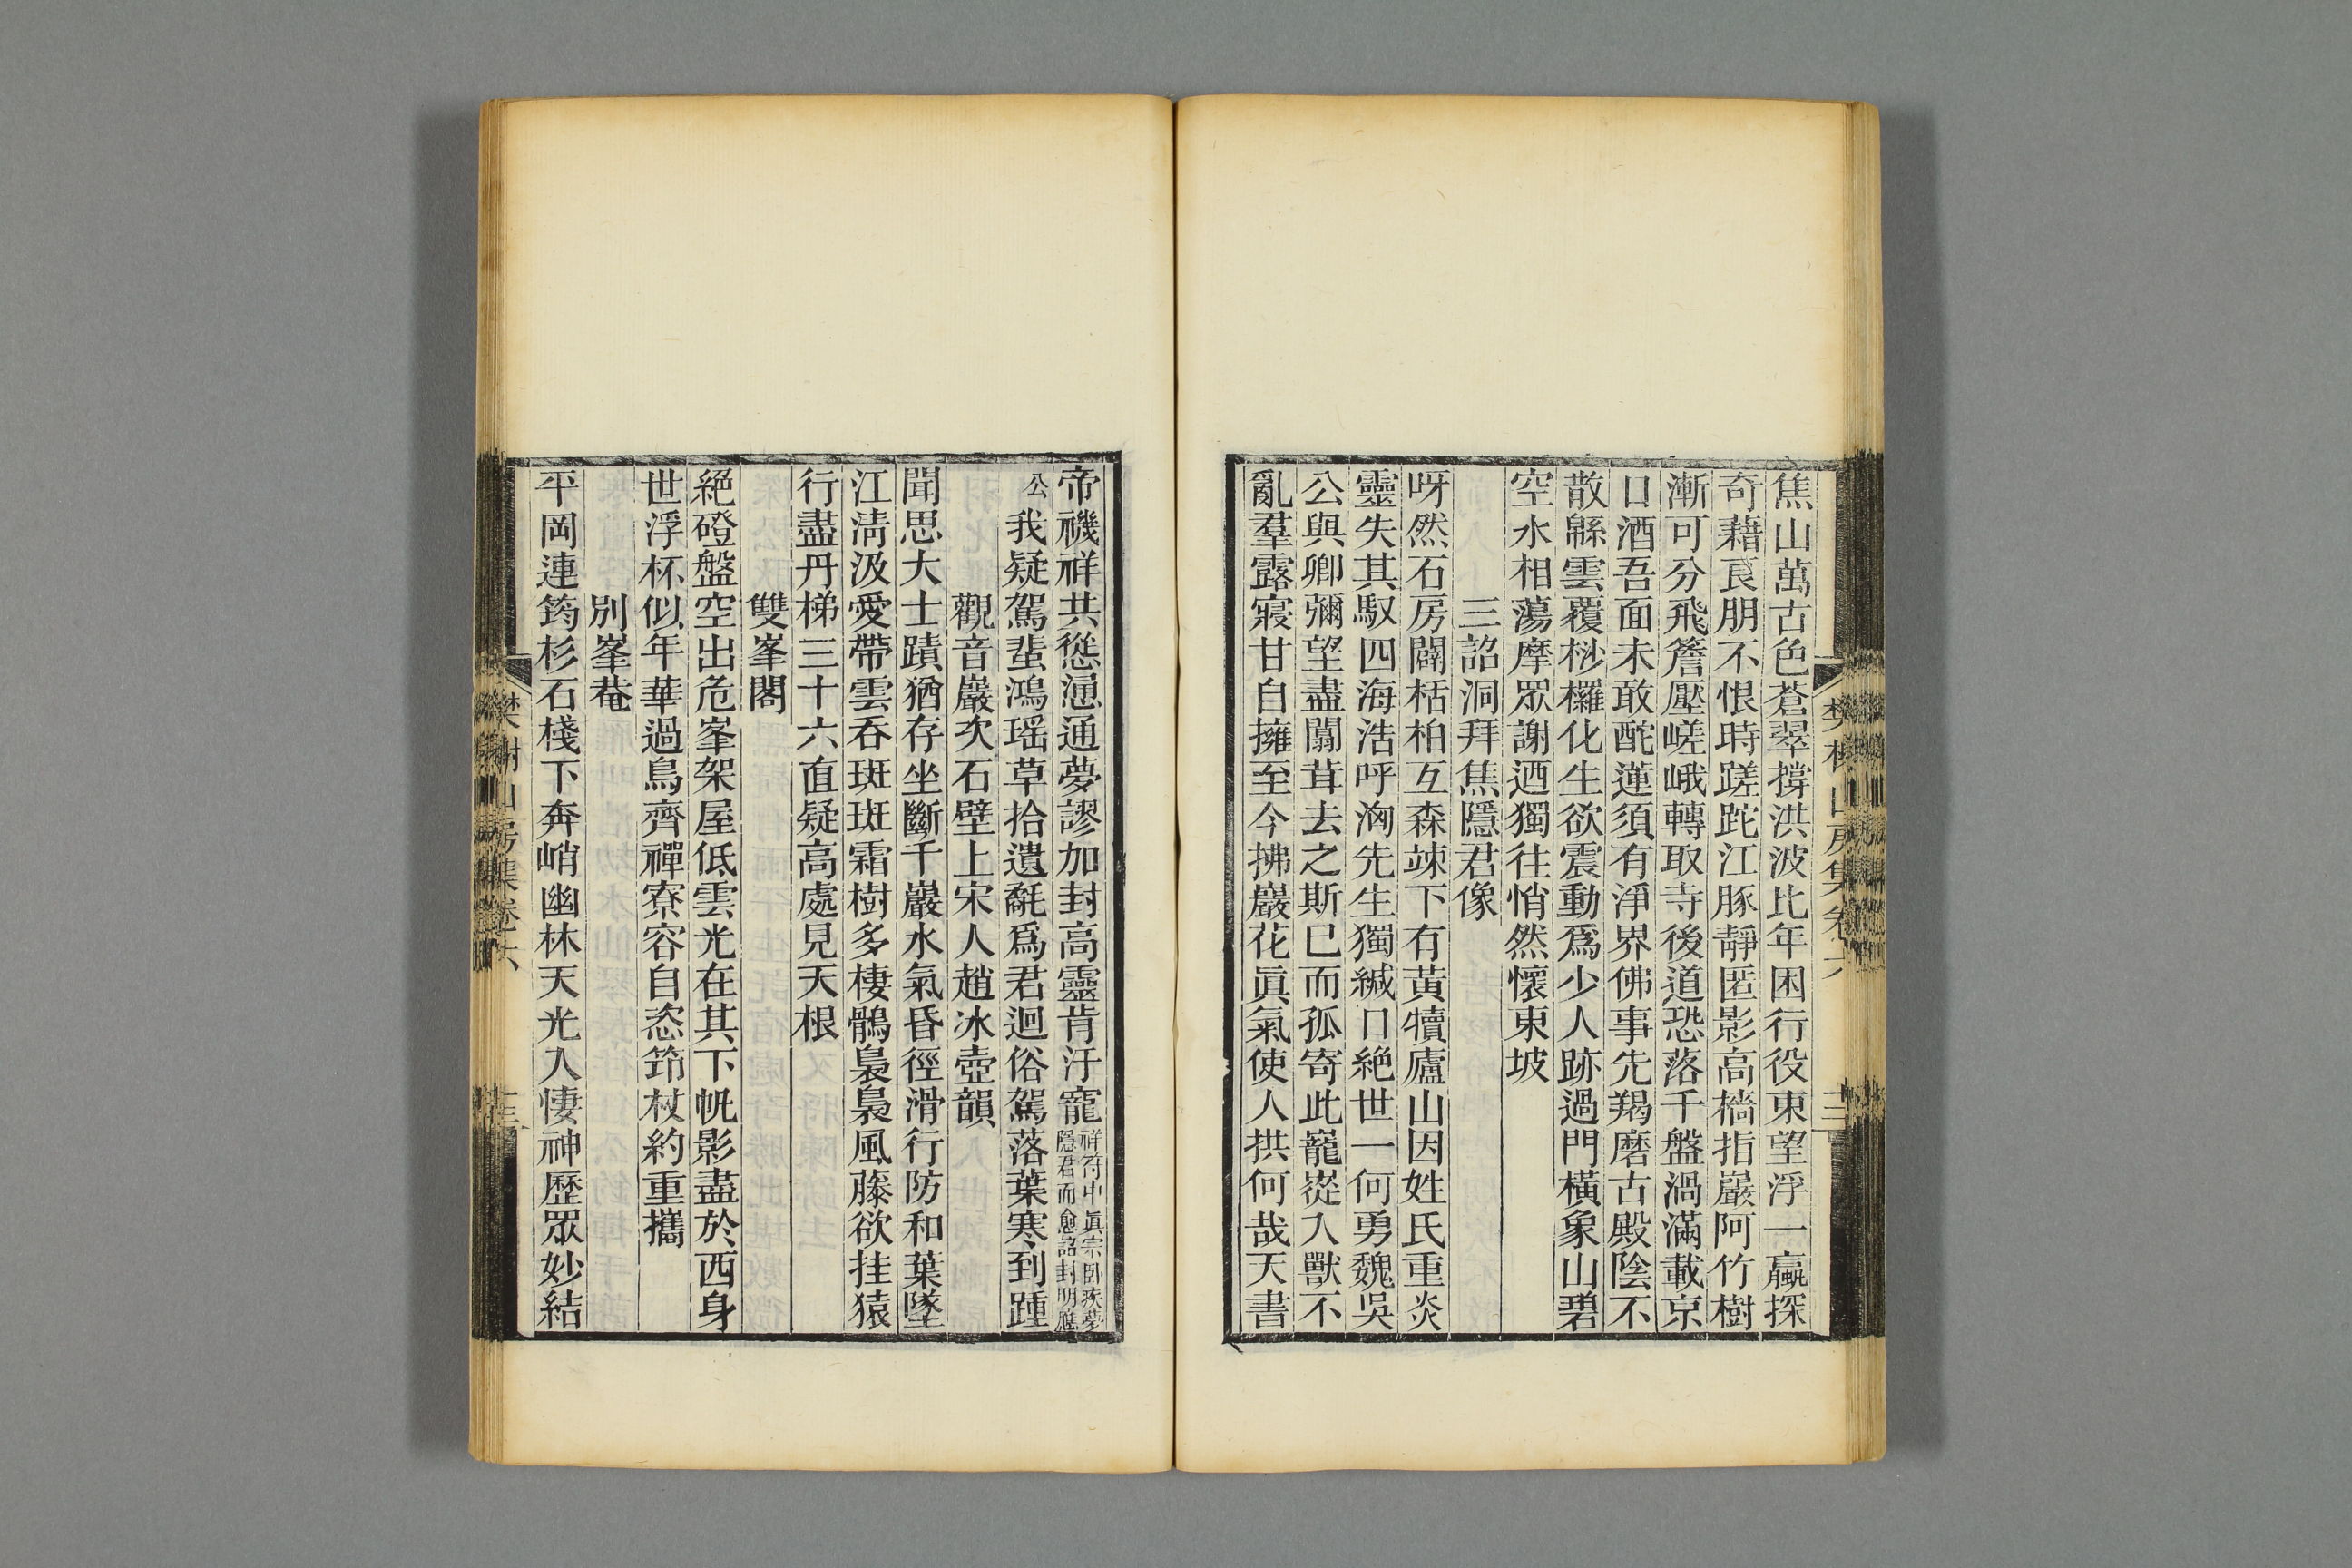 焦山萬古色蒼翠撐洪波比年困行役東望浮一蠃探
奇藉良朋不恨時蹉跎江豚靜匿影高檣指巖阿竹樹
漸可分飛簷壓嵯峨轉取寺後道恐落千盤渦滿載京
口酒吾面未敢酡蓮須有淨界佛事先羯磨古殿陰不
散緜雲覆桫欏化生欲震動爲少人跡過門橫象山碧
空水相蕩摩眾謝迺獨往悄然懷東坡
三詔洞拜焦隱君像
呀然石房闢栝柏互森竦下有黃犢廬山因姓氏重炎
靈失其馭四海浩呼洶先生獨緘口絕世一何勇魏吳
公與卿彌望盡闒茸去之斯已而孤寄此巃嵸入獸不
亂羣露寢甘自擁至今拂巖花眞氣使人拱何哉天書
帝禨祥共慫恿通夢謬加封高靈肯汙寵祥符中眞宗臥疾夢
隱君而愈詔封明應
公我疑駕蜚鴻瑶草拾遺氄爲君迴俗駕落葉寒到踵
觀音巖次石壁上宋人趙冰壺韻
聞思大士蹟猶存坐斷千巖水氣昏徑滑行防和葉墜
江淸汲愛帶雲呑斑斑霜樹多棲鶻裊裊風藤欲挂猿
行盡丹梯三十六直疑高處見天根
雙峯閣
絕磴盤空出危峯架屋低雲光在其下帆影盡於西身
世浮杯似年華過鳥齊禪寮容自恣筇杖約重攜
別峯菴
平岡連筠杉石棧下奔峭幽林天光入悽神歷眾妙結
樊榭山房集卷六
十三